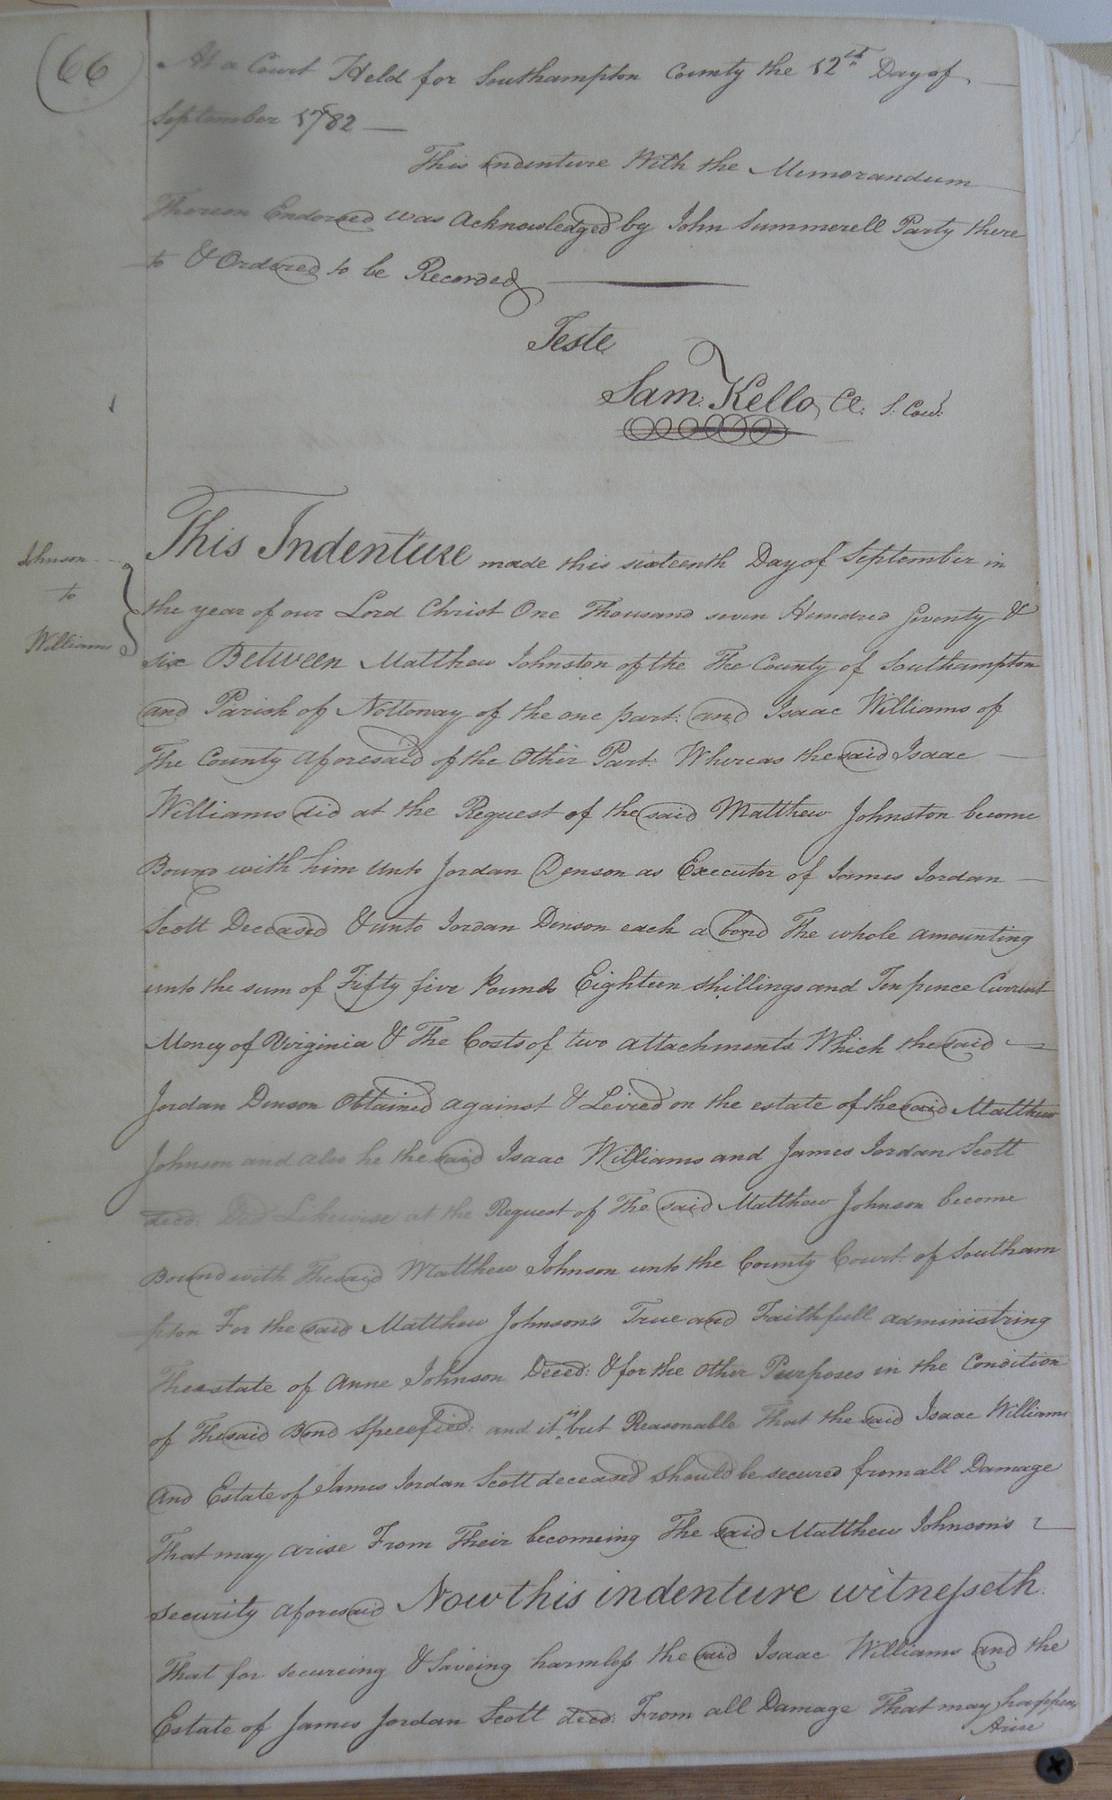 66
At a Court Held for Southampton County the 12th Day of
September 1782
This indenture With the Memorandum
Thereon Endorsed was Acknowledged by John Summerell Party there
to & Ordered to be Recorded
Teste
Sam. Kello, Cl. S. Cow.
Johnson
to
Williams
This Indenture made this sixteenth Day of September in
the year of our Lord Christ One Thousand seven Hundred seventy &
six Between Matthew Johnston of the The County of Southampton
and Parish of Nottoway of the one part: and Isaac Williams of
The County aforesaid of the Other Part: Whereas the said Isaac
Williams did at the Request of the said Matthew Johnston become
Bound with him Unto Jordan Denson as Executor of James Jordan
Scott Deceased & unto Jordan Denson each a bond The whole amounting
unto the sum of Fifty five Pounds Eighteen shillings and Ten pence Current
Money of Virginia & The Costs of two attachments Which the said
Jordan Denson Obtained against & Leived on the estate of the said Matthew
Johnson and also he the said Isaac Williams and James Jordan Scott
decd. Did Likewise at the Request of The said Matthew Johnson become
Bound with The said Matthew Johnson unto the County Court of Southam
pton For the said Matthew Johnson's True and Faithfull administring
The estate of Anne Johnson Deced: & for the other Purposes in the Condition
of The said Bond Specefied: and it is but Reasonable That the said Isaac Williams
And Estate of James Jordan Scott deceased should be secured from all Damage
That may arise From Their becomeing The said Matthew Johnson's
security aforesaid Now this indenture witnesseth.
That for secureing & Saveing harmless the said Isaac Williams and the
Estate of James Jordan Scott deced: From all Damage That may happen
Arise